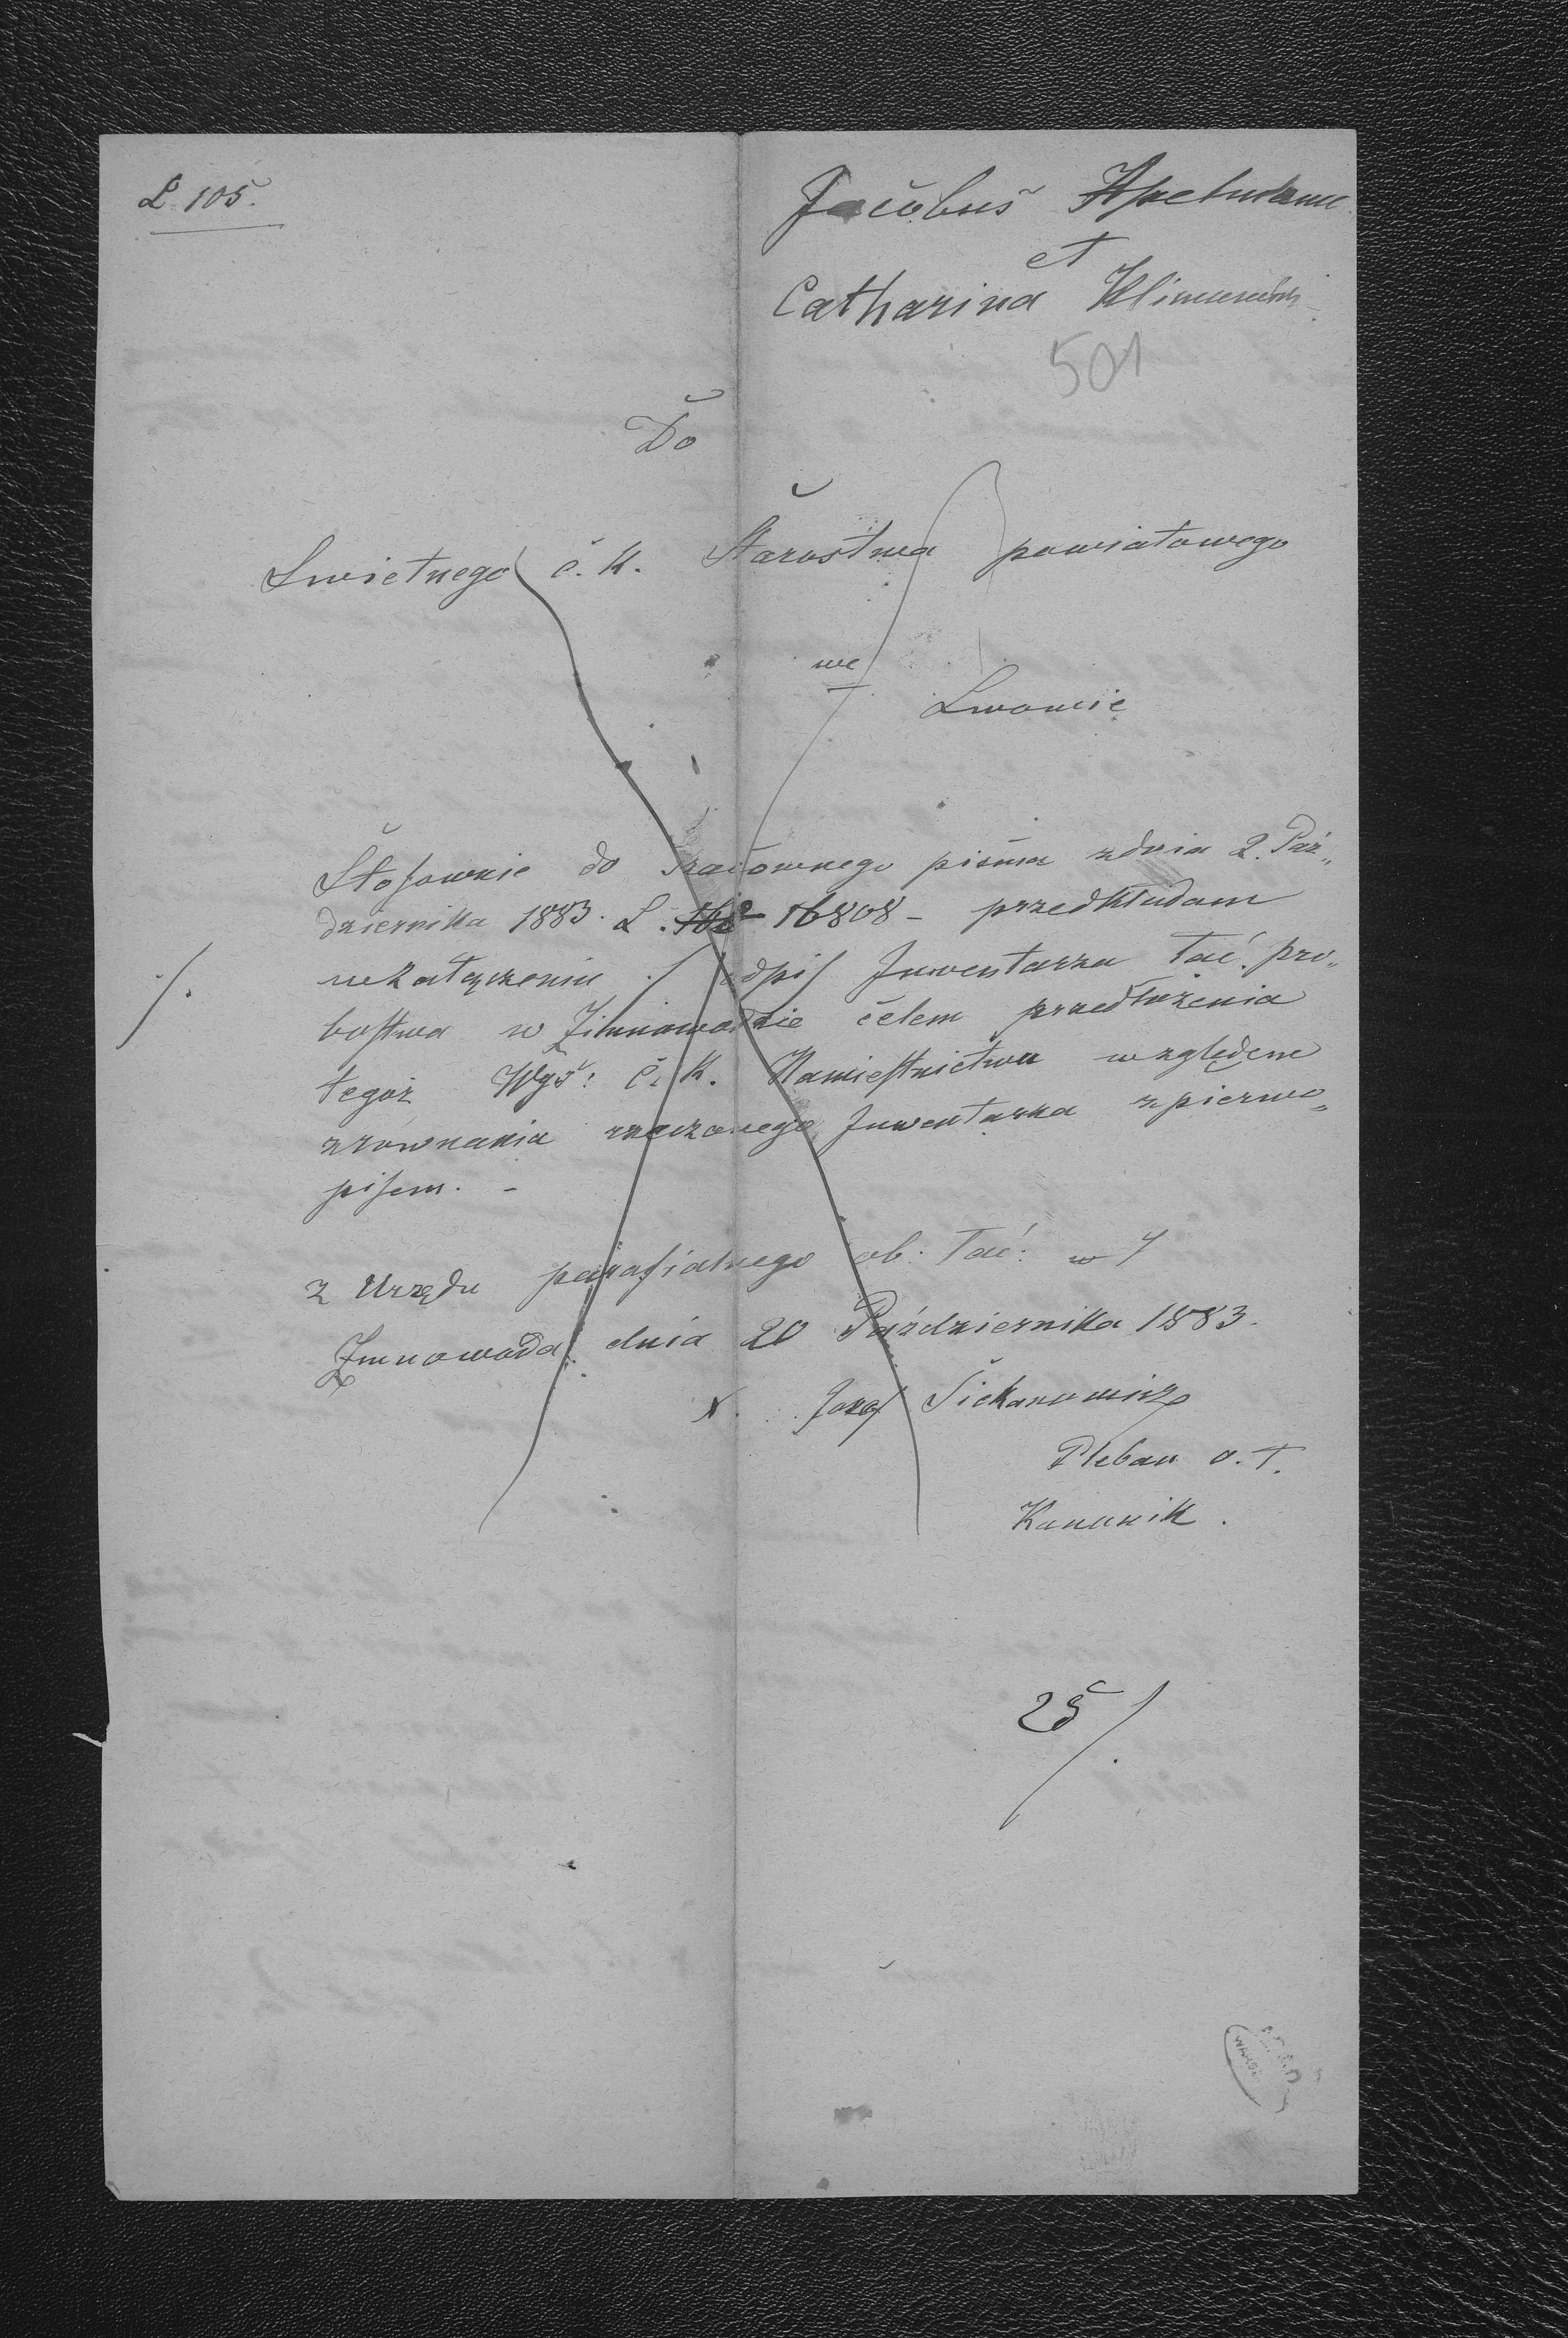 L. 105.
Jacobus
et
Catharina
501
Do
Swietnego c. k. Starostwa powiatowego
we
Lwowie
Stosownie do szacownego pisma z dnia 2. Paź„
dziernika 1883. L. 16808 – przedkładam
./. w załączeniu ./. odpis Inwentarza łać. pro„
bostwa w Zimnowodzie celem przedłożenia
tegoż Wys: c. k. Namiestnictwu względem
zrównania rzeczonego Inwentarza z pierwo„
pisem. –
z Urzędu parafialnego ob: łać: w
Zimnowoda dnia 20 Października 1883.
X. Jozef
Pleban o. ł.
Kanonik.
25/.